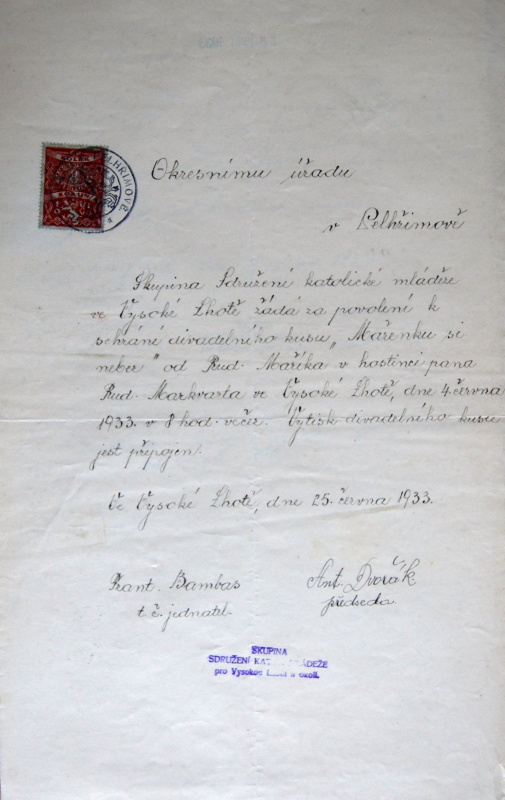 Okresnímu úřadu
v Pelhřimově
Skupina Sdružení katolické mládeže
ve Vysoké Lhotě žádá za povolení k
sehrání divadelního kusu „Mařenku si
neber" od Rud. Maříka v hostinci pana
Rud. Markvarta ve Vysoké Lhotě, dne 4. června
1933 v 8 hod. večer. Výtisk divadelního kusu
jest připojen.
Ve Vysoké Lhotě, dne 25. června 1933.
Frant. Bambas
t. č. jednatel.
Ant. Dvořák
předseda.
SKUPINA
SDRUŽENÍ KAT. MLÁDEŽE
pro Vysokou a okolí.